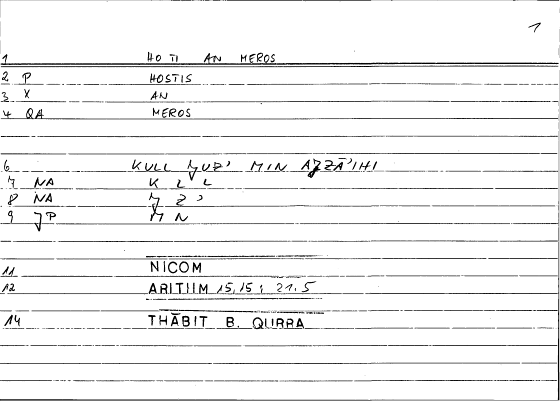 1
1 HO TI AN MEROS
2 P HOSTIS
3 X AN
4 QA MEROS
6 KULL ǦUZ' MIN AǦZĀ'IHI
7 NA K L L
8 NA Ǧ Z '
9 ǦP M N
11 NICOM
12 ARITIIM 15,15; 21.5
14 THĀBIT B. QURRA